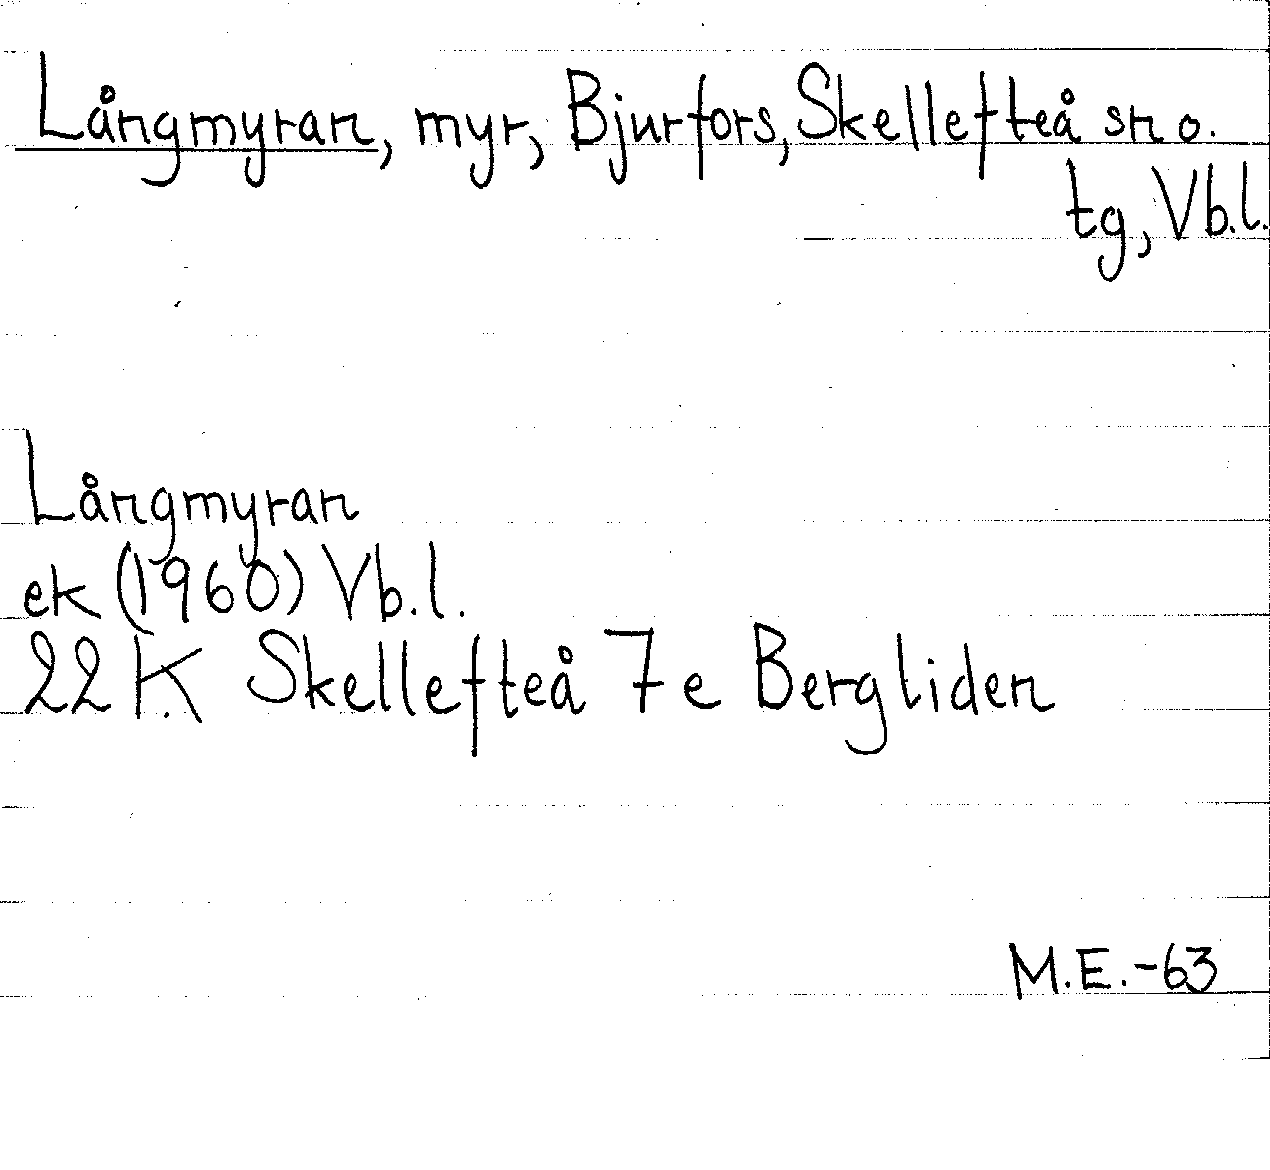 Långmyran, myr, Bjurfors, Skellefteå sn o.
tg, Vb.l.
Långmyran
ek (1960) Vb.l.
22 K Skellefteå 7e Bergliden
M.E.-63